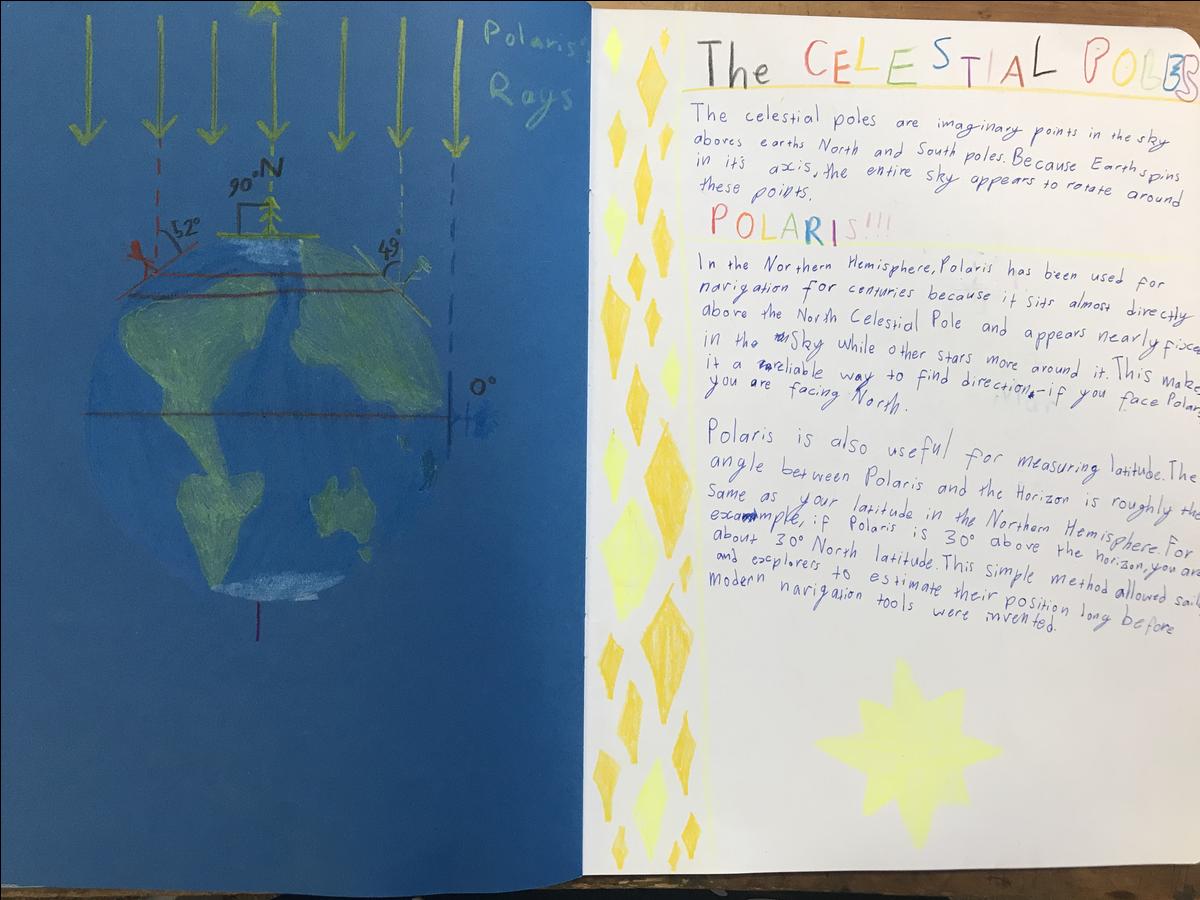 Polaris's
Rays
N
90°
52°
49°
0°
The CELESTIAL POLES
The celestial poles are imaginary points in the sky
aboves earths North and South poles. Because Earth spins
in it's axis, the entire sky appears to rotate around
these points.
POLARIS!!!
In the Northern Hemisphere, Polaris has been used for
navigation for centuries because it sits almost directly
above the North Celestial Pole and appears nearly fixe
in the Sky while other stars move around it. This make
it a reliable way to find direction-if you face Polar
you are facing North.
Polaris is also useful for measuring latitude. The
angle between Polaris and the Horizon is roughly the
Same as your latitude in the Northern Hemisphere. For
example, if Polaris is 30° above the horizon, you are
about 30° North latitude. This simple method allowed sail
and explorers to estimate their position long before
modern navigation tools were invented.